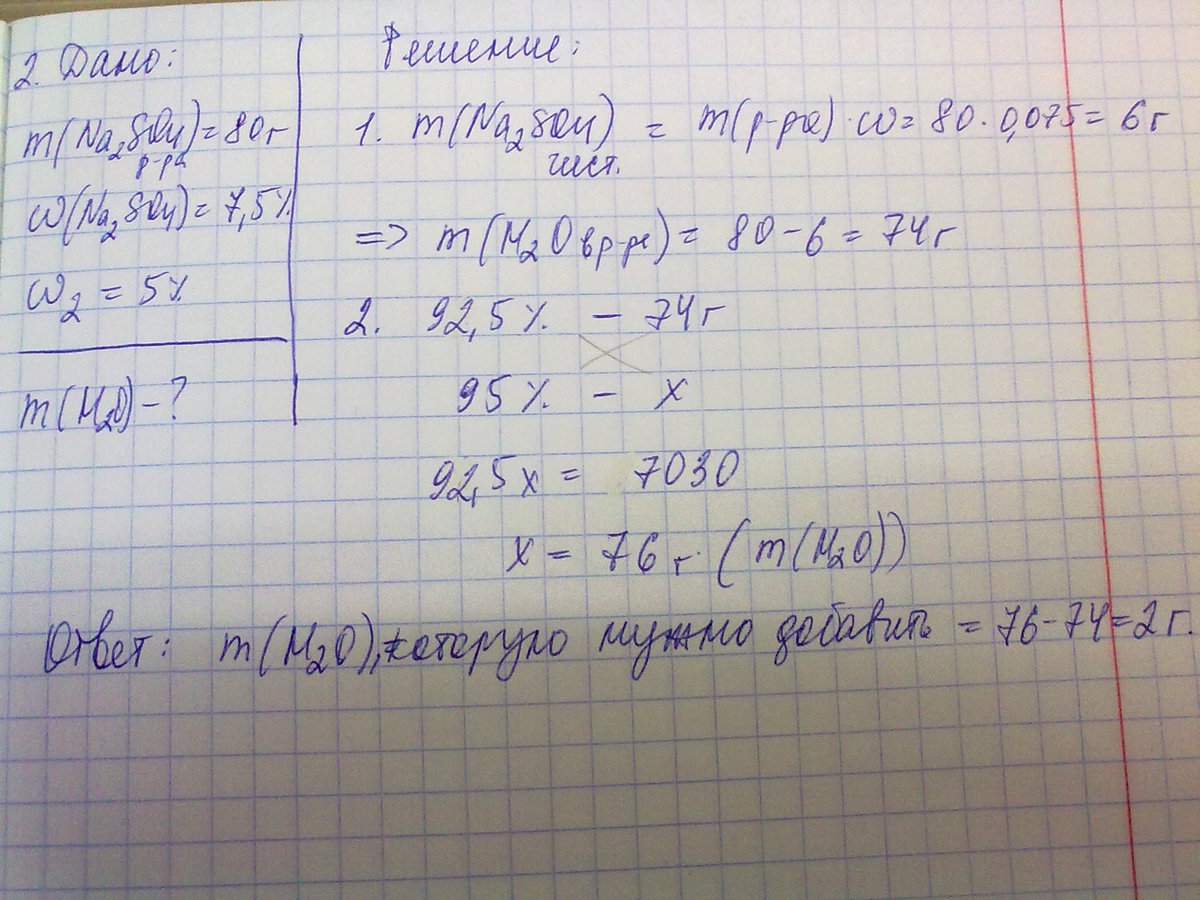 2. Дано:
m(Na2SO4)=80г
р-ра
ω(Na2SO4)=7,5%
ω2 = 5%
m(H2O)-?
Решение:
1. m(Na2SO4) = m(р-ра)·ω= 80·0,075= 6г
чист.
=> m(H2O в р-ре)= 80-6=74г
2. 92,5% - 74г
95% - x
92,5x = 7030
x = 76 г. (m(H2O))
Ответ: m(H2O), которую нужно добавить = 76-74=2г.